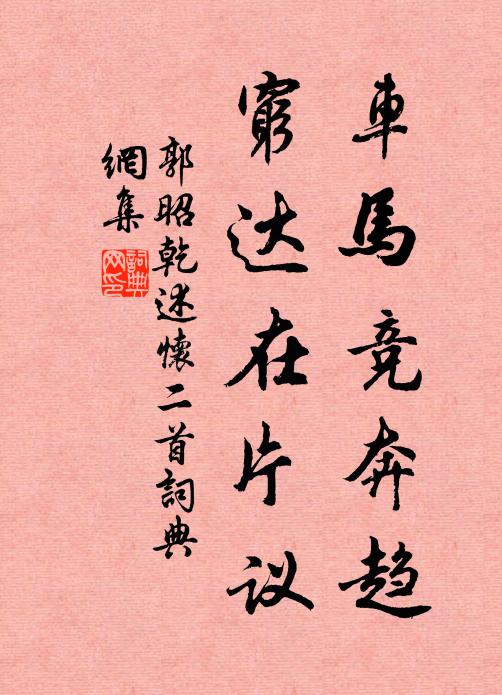 車馬竞奔趋
窮达在片议
郭昭乾述懷二首詞典
網集
詞典网印